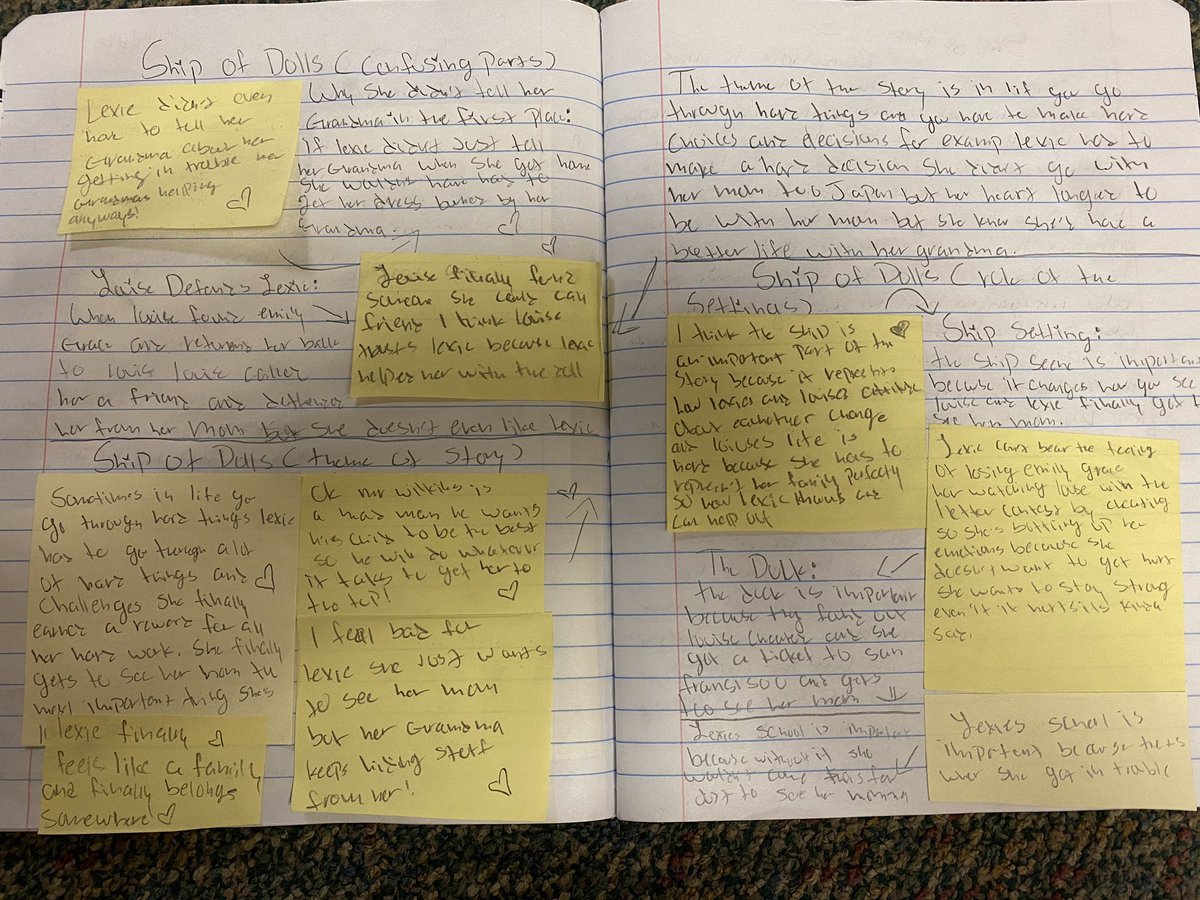 Ship of Dolls (Confusing Parts)
Lexie didnt even
have to tell her
Grandma about her
getting in trouble her
Grandmas helping
anyways!
Why she didn't tell her
Grandma in the first place:
If lexie didnt Just tell
her Grandma when she got home
she have had to
get her dress by her
Grandma.
Luise Defends Lexie:
When louise found emily
Grace and returns her
to louise louise called
her a friend and
her from her mom but she doesn't even like lexie
Louise finally found
someone she could call
friend I think louise
trusts lexie because lexie
helped her with the
Ship of Dolls (theme of Story)
Sometimes in life yo
go through hard things lexie
has to go through a lot
of hard things and
Challenges she finally
earned a reward for all
her hard work. She finally
gets to see her mom the
most important thing she's
lexie finally
feels like a family
and finally belongs
somewhere
Ok mr wilkins is
a mad man he wants
his child to be the best
so he will do whatever
it takes to get her to
the top!
I feel bad for
lexie she Just wants
to see her mom
but her Grandma
keeps hiding stuff
from her!
The theme of the story is in lif you go
through hard things and you have to make hard
choices and decisions for examp lexie has to
make a hard decision she didnt go with
her mom to Japan but her heart longed to
be with her mom but she knew she's had a
better life with her grandma.
Ship of Dolls (role of the
Settings)
I think the ship is
an important part of the
story because it
how lexies and louises
about eachother change
and louises life is
hard because she has to
represent her family perfectly
so how lexie thinks and
can help out
Ship Setting:
the ship seen is important
because it changes how you see
louise and lexie finally got t
see her mom.
Lexie cant bear the feeling
of losing emily grace
her watching louise win the
letter contest by cheating
so she's up her
emotions because she
doesn't want to get hurt
she wants to stay strong
even if it hurts its kinda
sad.
The Dock:
the dock is important
because they found out
louise cheated and she
got a ticket to san
francisoo and gets
too see her mom
Lexies school is important
because without it she
Just to see her momma
Lexies school is
important because thats
wher she got in trouble